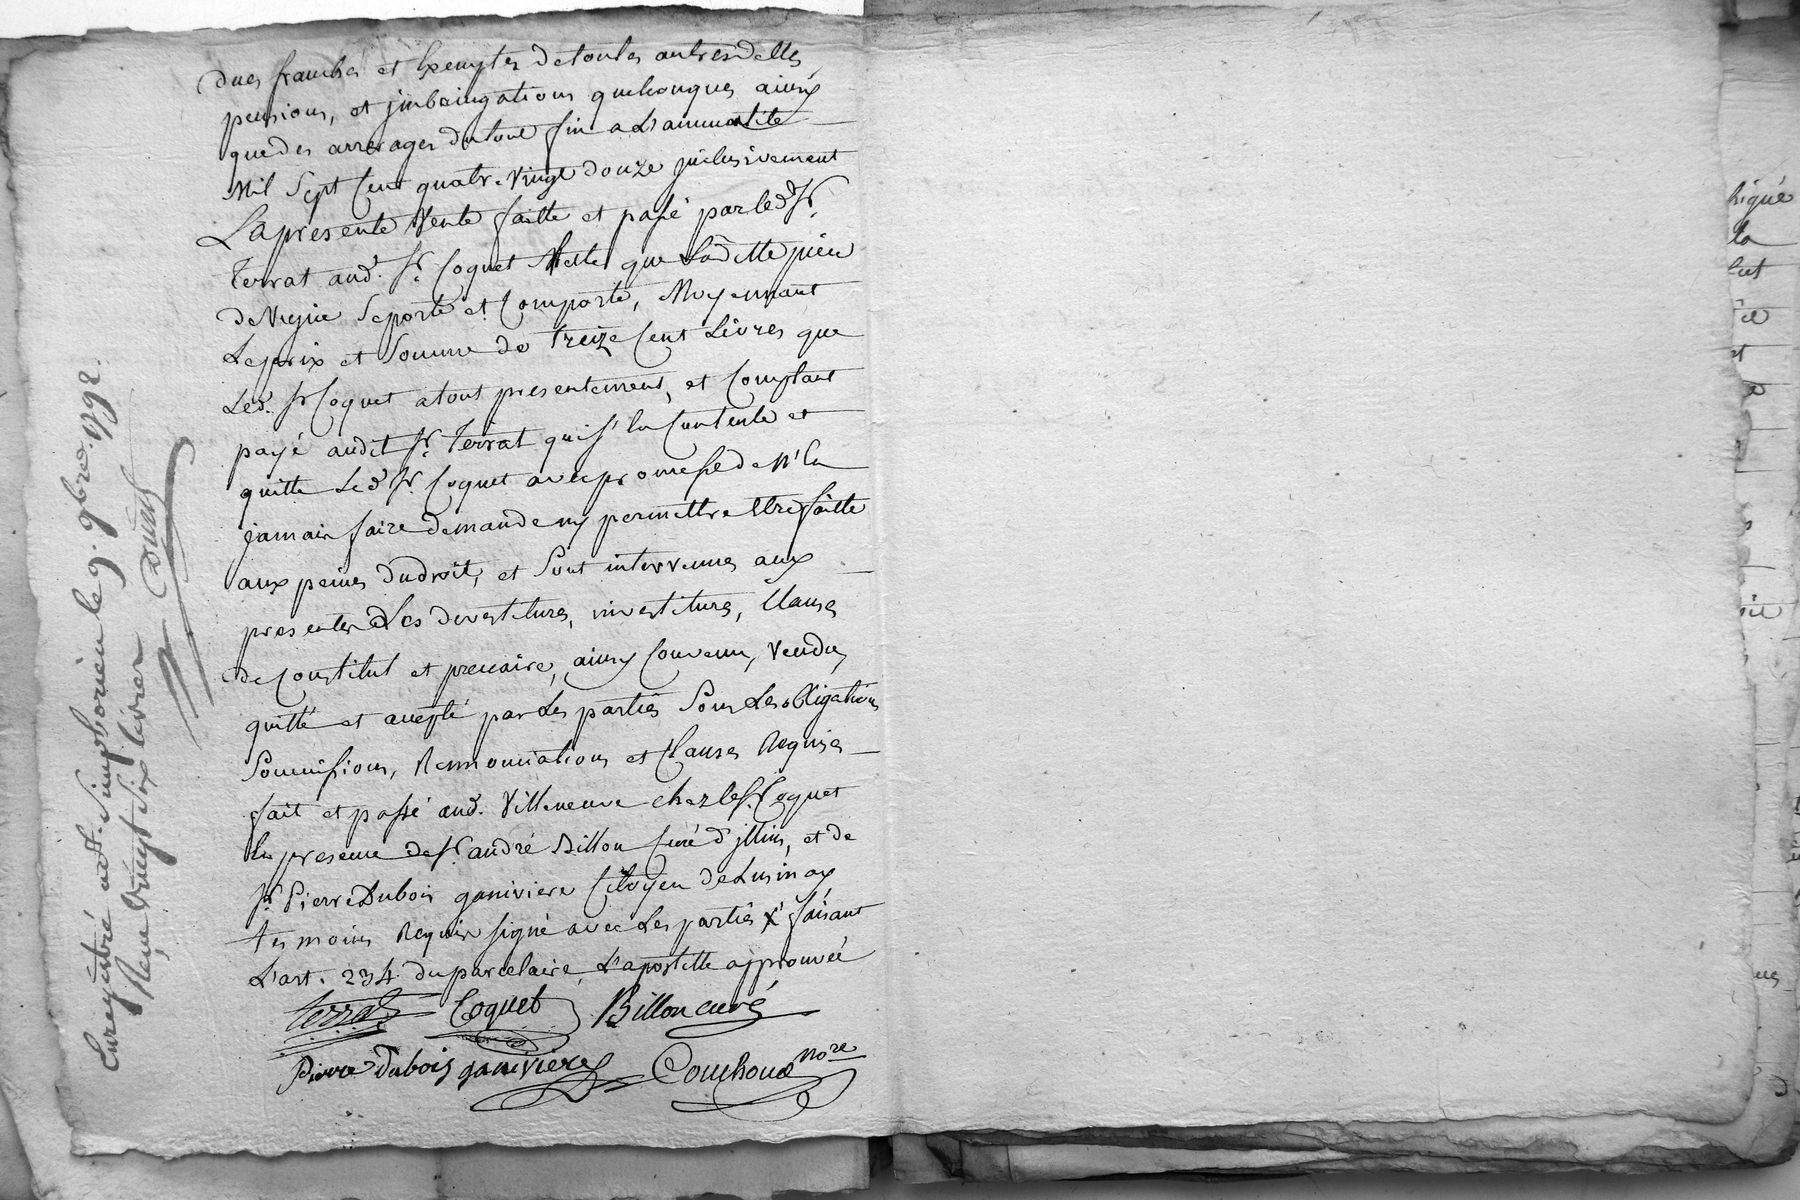 dues franches et Exemptes de toutes autres dettes
pensions, et jmbringations quelconques ainsy
que des arrerages du tout fin a L'annualité
Mil Sept Cent quatre-Vingt douze jnclusivement
La presente Vente faitte et passé par led. Sr.
Terrat aud. Sr. Coquet telle que laditte piece
de Vigne Se porte et Comporte, Moyennant
Le prix et Somme de Treize Cent Livres que
Led. Sr Coquet a tout presentement, et Comptant
payé audit Sr. Terrat qui s'en Contente et
quitte Led. Sr. Coquet avec promesse de N'en
jamais faire demande ny permettre Etre faitte
aux peines du droit, et Sont intervenues aux
presentes Les devestitures, investitures, Clauses
de Constitut et precaire, ainsy Convenu, Vendu,
quitté et accepté par Les parties Sous Les obligations
Soumissions, Rennonciations et Clauses Requises
fait et passé aud. Villeneuve chez le Sr. Coquet
En presence de Sr. andré Billon Curé d'jllins, et de
Sr. Pierre Dubois ganiviere Citoyen de Lusinay
temoins Requis signé avec Les parties X faisant
L'art. 234. du parcelaire, L'apostille approuvée
Terrat Coquet Billon curé
Pierre dubois ganiviere Couchoud Nore
Enregistré a St. Simphorien le 9. 9bre. 1792.
Reçu Vingt Six Livres